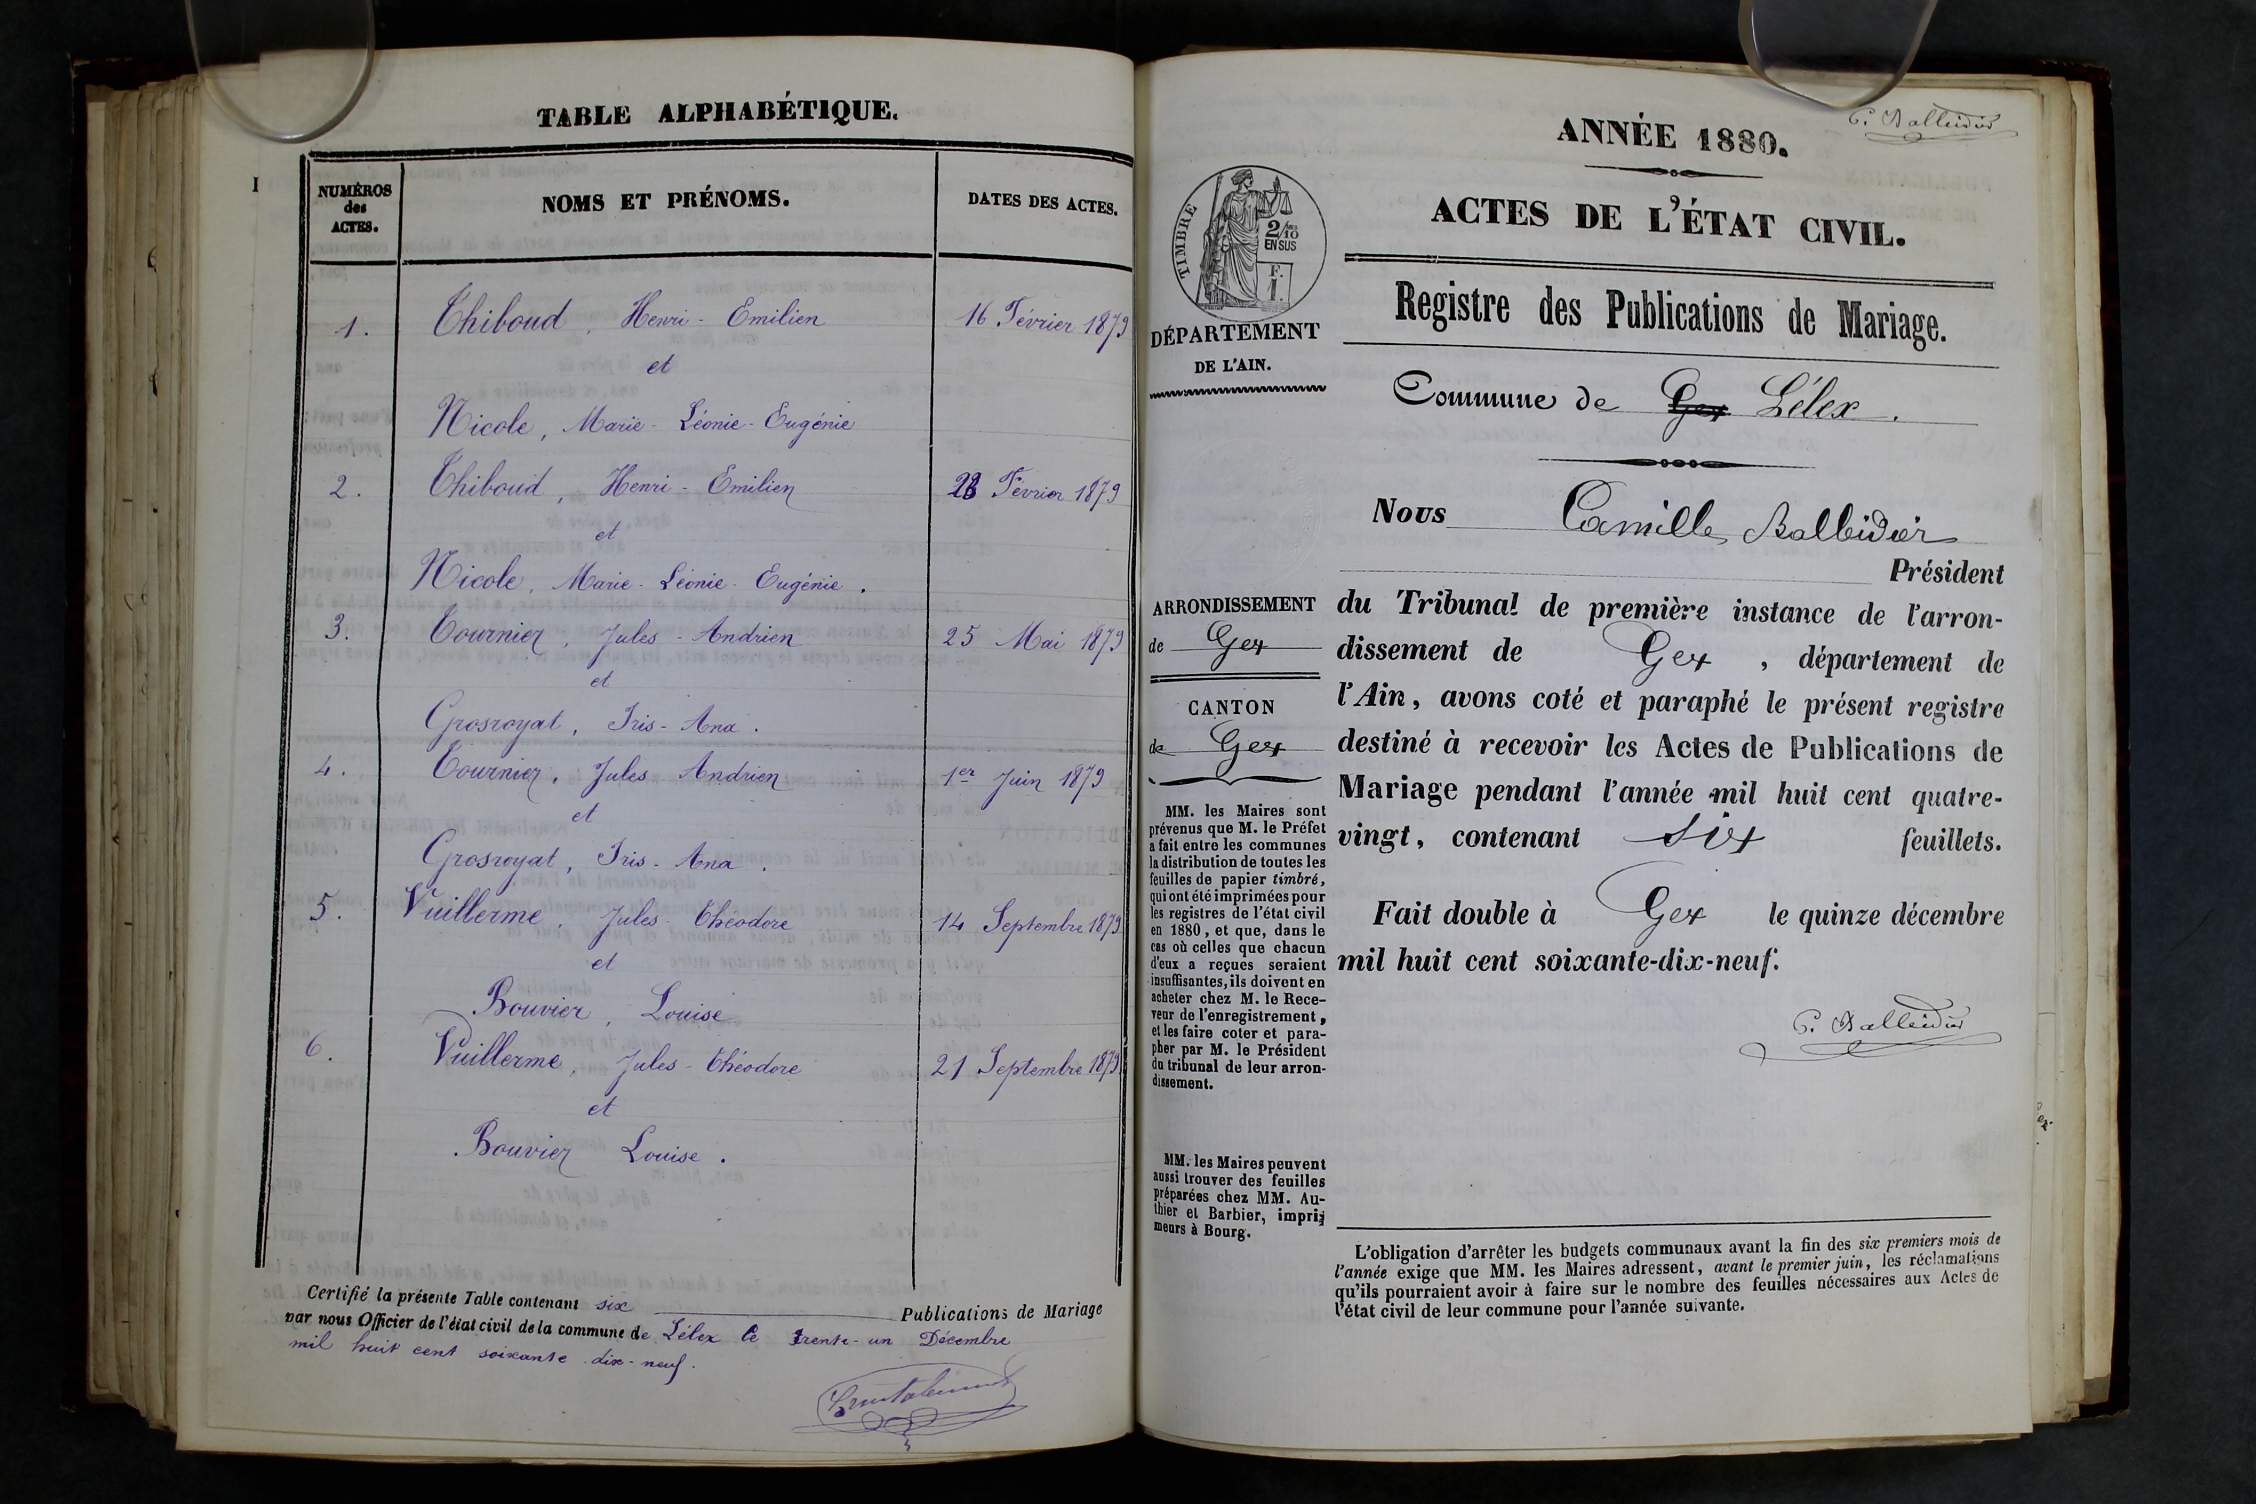 TABLE ALPHABÉTIQUE.
NUMÉROS
des
ACTES.
NOMS ET PRÉNOMS.
DATES DES ACTES.
1. Thiboud, Henri-Emilien 16 Février 1879
et
Nicole, Marie-Léonie-Eugénie
2. Thiboud, Henri-Emilien 23 Février 1879
et
Nicole, Marie-Léonie-Eugénie.
3. Tournier, Jules-Andrien 25 Mai 1879
et
Grosroyat, Iris-Ana.
4. Tournier, Jules Andrien 1er Juin 1879
et
Grosroyat, Iris-Ana.
5. Vuillerme, Jules-Théodore 14 Septembre 1879
et
Bouvier, Louise
6. Vuillerme, Jules-Théodore 21 Septembre 1879
et
Bouvier Louise.
Certifié la présente Table contenant six Publications de Mariage
par nous Officier de l'état civil de la commune de Lélex le trente-un Décembre
mil huit cent soixante-dix-neuf.
C. Balleidier
ANNÉE 1880.
ACTES DE L'ÉTAT CIVIL.
Registre des Publications de Mariage.
Commune de Gex Lélex.
TIMBRE
2/10
EN SUS
F.
1.
DÉPARTEMENT
DE L'AIN.
ARRONDISSEMENT
de Gex
CANTON
de Gex
MM. les Maires sont
prévenus que M. le Préfet
a fait entre les communes
la distribution de toutes les
feuilles de papier timbré,
qui ont été imprimées pour
les registres de l'état civil
en 1880, et que, dans le
cas où celles que chacun
d'eux a reçues seraient
insuffisantes, ils doivent en
acheter chez M. le Rece-
veur de l'enregistrement,
et les faire coter et para-
pher par M. le Président
du tribunal de leur arron-
dissement.
MM. les Maires peuvent
aussi trouver des feuilles
préparées chez MM. Au-
thier et Barbier, impri-
meurs à Bourg.
Nous Camille Balleidier
Président
du Tribunal de première instance de l'arron-
dissement de Gex, département de
l'Ain, avons coté et paraphé le présent registre
destiné à recevoir les Actes de Publications de
Mariage pendant l'année mil huit cent quatre-
vingt, contenant six feuillets.
Fait double à Gex le quinze décembre
mil huit cent soixante-dix-neuf.
C. Balleidier
L'obligation d'arrêter les budgets communaux avant la fin des six premiers mois de
l'année exige que MM. les Maires adressent, avant le premier juin, les réclamations
qu'ils pourraient avoir à faire sur le nombre des feuilles nécessaires aux Actes de
l'état civil de leur commune pour l'année suivante.